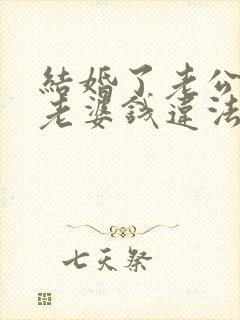 結婚了老公
老婆錢違法
七天祭